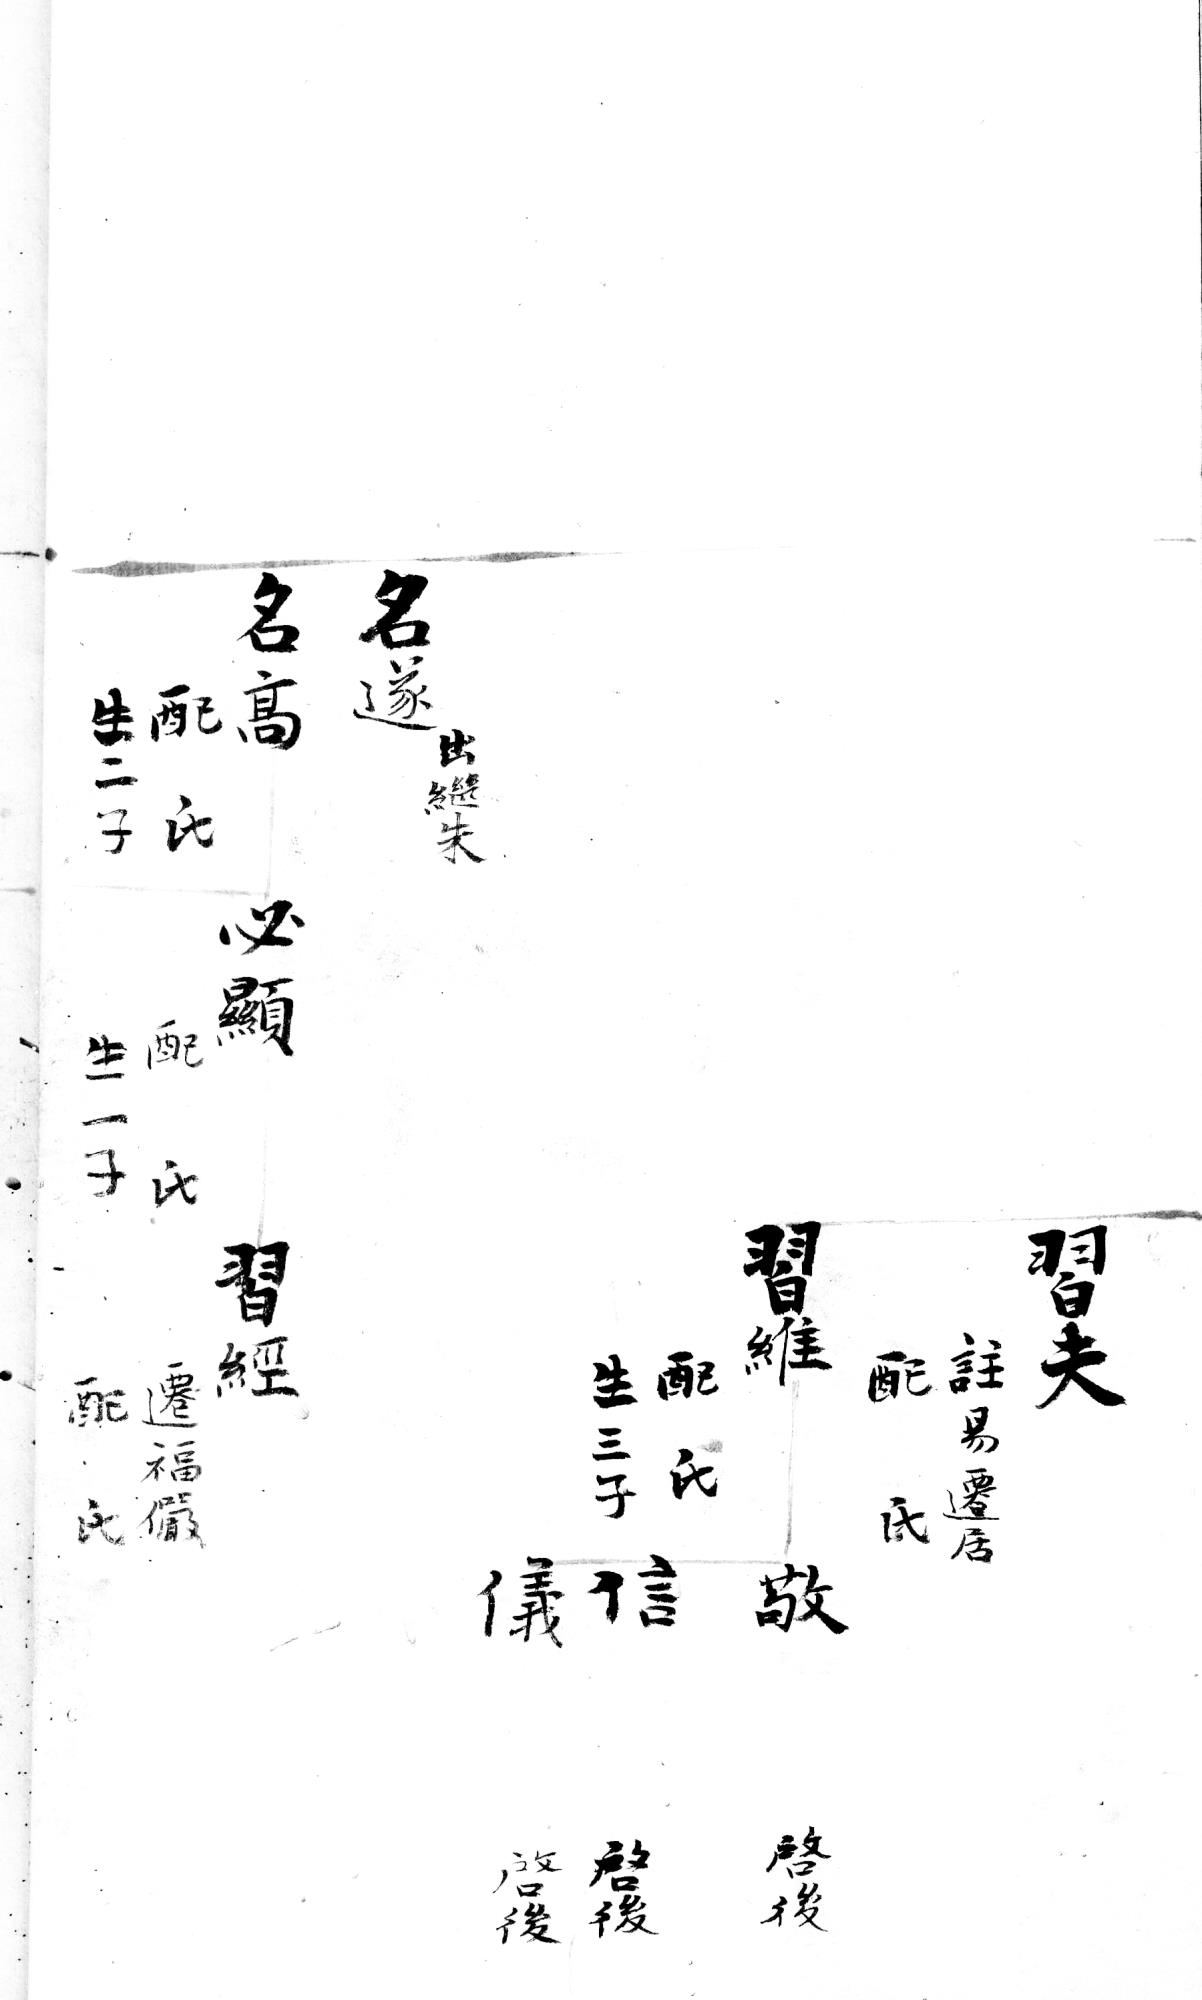 名遂
出繼朱
名高
配 氏
生二子
必顯
配 氏
生一子
習夫
註易遷居
配 氏
習維
配 氏
生三子
習經
遷福儼
配 氏
敬
啓後
信
啓後
儀
啓後